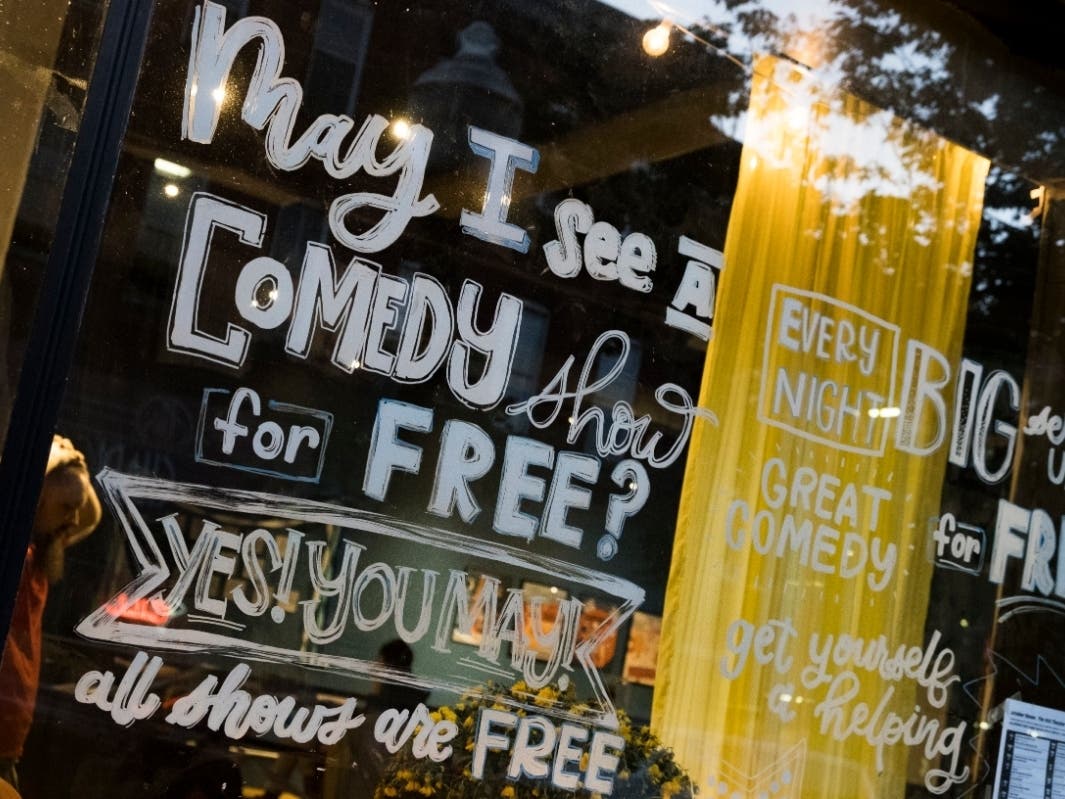 May I see A
COMEDY show
for FREE?
YES! YOU MAY!
all shows are FREE
EVERY
NIGHT
GREAT
COMEDY
get yourself
a helping
BIG
for